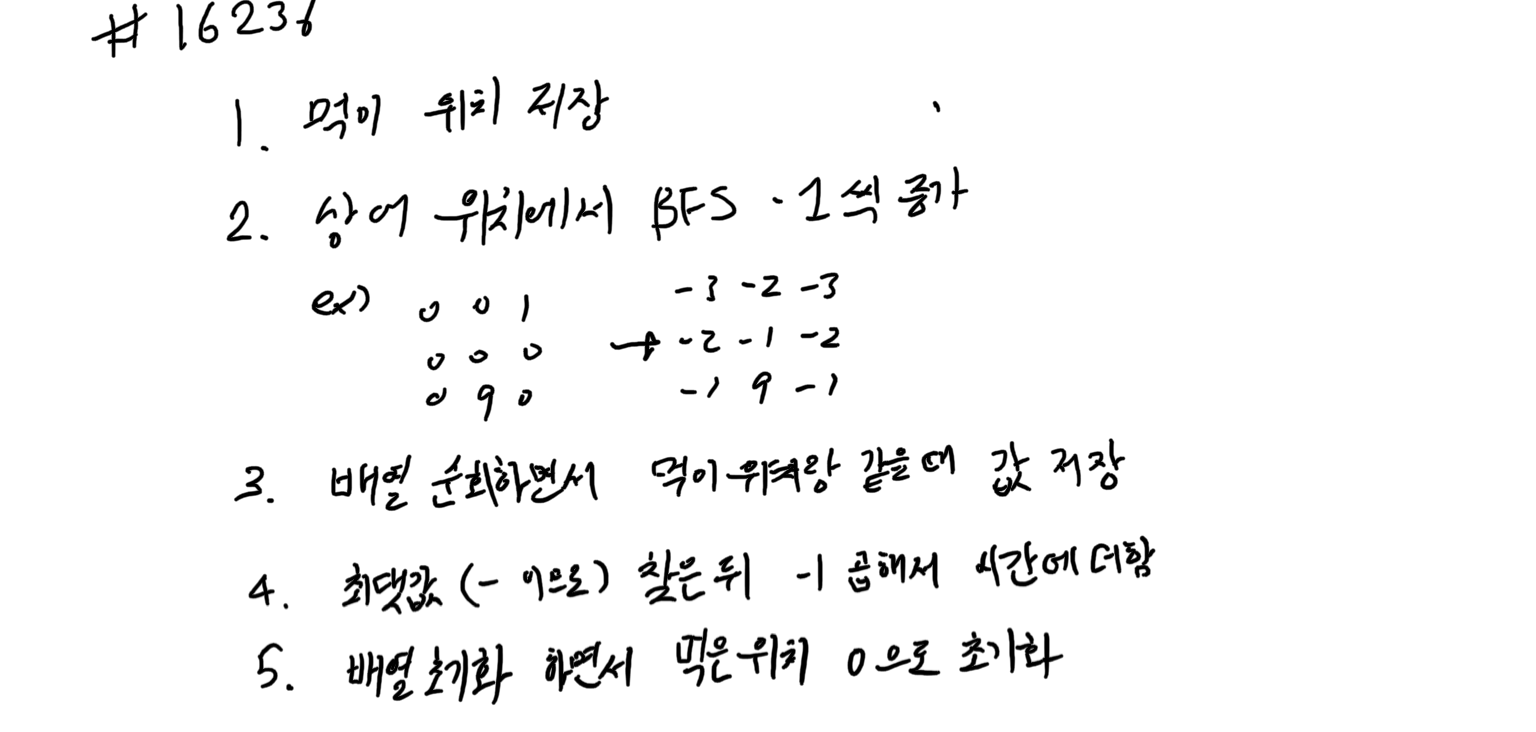 # 16236
1. 먹이 위치 저장
2. 상어 위치에서 BFS · 1씩 증가
ex) 0 0 1 -3 -2 -3
0 0 0 → -2 -1 -2
0 9 0 -1 9 -1
3. 배열 순회하면서 먹이위치랑 같을때 값 저장
4. 최댓값 (- 이므로) 찾은 뒤 -1 곱해서 시간에 더함
5. 배열초기화 하면서 먹은위치 0으로 초기화